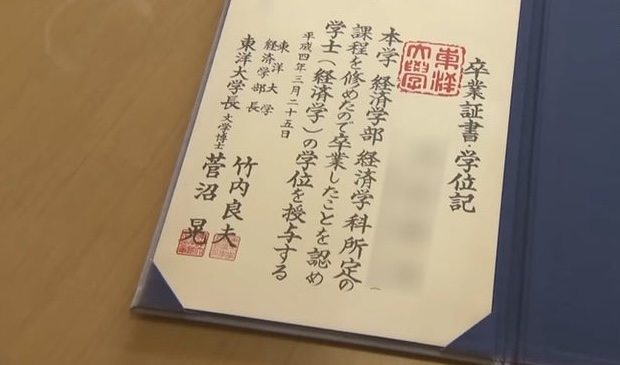 卒業証書・学位記
東洋
大学
本学 経済学部 経済学科所定の
課程を修めたので卒業したことを認め
学士(経済学)の学位を授与する
平成四年三月二十五日
東洋大学
経済学部長 竹内良夫
東洋大学長 文学博士 菅沼晃